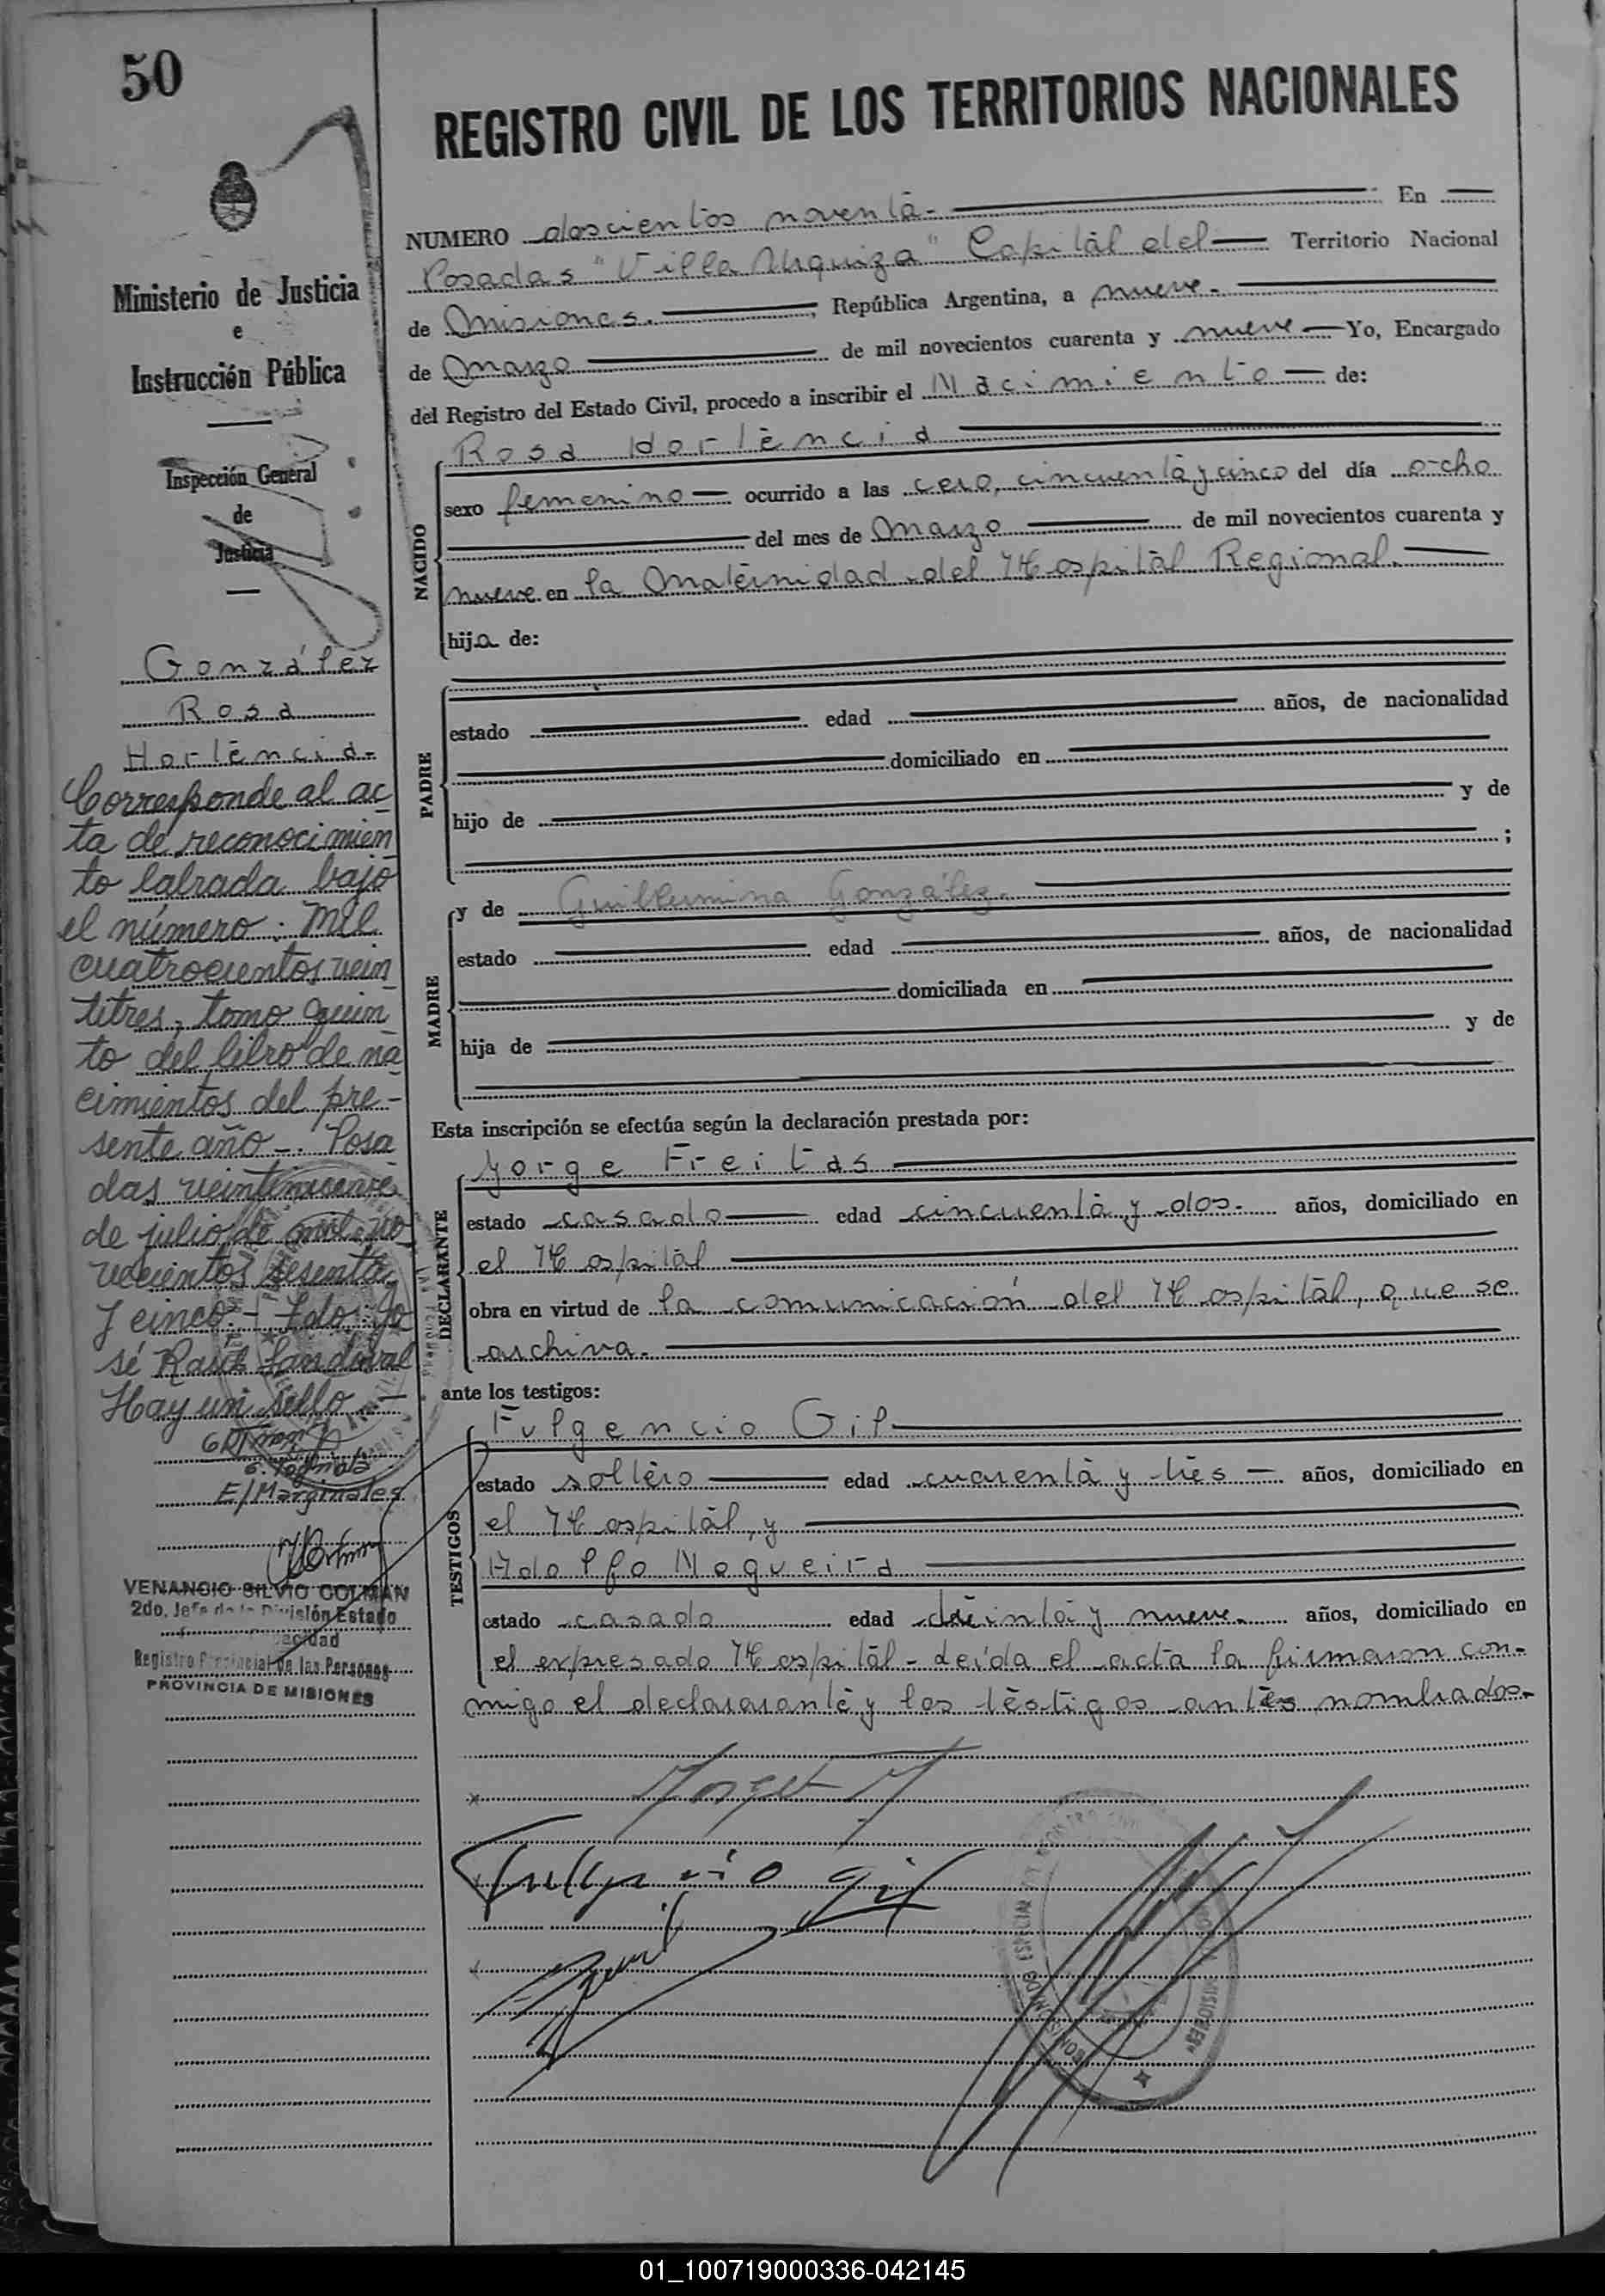 50
Ministerio de Justicia
e
Instrucción Pública
Inspección General
de
Justicia
González
Rosa
Hortencia-
Corresponde al ac
ta de reconocimien
to labrada bajo
el número: Mil
cuatrocientos vein
titres, tomo quin
to del libro de na
cimientos del pre-
sente año-. Posa
das veintinueve
de julio de mil no
vecientos sesenta
y cinco.- Fdo: Jo
sé Raúl Sandoval
Hay un sello -
E/Marginales
VENANCIO SILVIO COLMAN
2do. Jefe de la División Estado
Registro Provincial de las Personas
PROVINCIA DE MISIONES
REGISTRO CIVIL DE LOS TERRITORIOS NACIONALES
NUMERO doscientos noventa- En
Posadas "Villa Urquiza" Capital del Territorio Nacional
de Misiones. , República Argentina, a nueve-
de Marzo de mil novecientos cuarenta y nueve Yo, Encargado
del Registro del Estado Civil, procedo a inscribir el Nacimiento de:
NACIDO
Rosa Hortencia
sexo femenino ocurrido a las cero, cincuenta y cinco del día ocho
del mes de Marzo de mil novecientos cuarenta y
nueve en la Maternidad del Hospital Regional.
hija de:
PADRE
estado edad años, de nacionalidad
domiciliado en
hijo de y de
;
MADRE
y de Guillermina González.
estado edad años, de nacionalidad
domiciliada en
hija de y de
Esta inscripción se efectúa según la declaración prestada por:
DECLARANTE
Jorge Freitas
estado casado edad cincuenta y dos. años, domiciliado en
el Hospital
obra en virtud de la comunicación del Hospital, que se
archiva.
ante los testigos:
TESTIGOS
Fulgencio Gil
estado soltero edad cuarenta y tres años, domiciliado en
el Hospital, y
Adolfo Nogueira
estado casado edad treinta y nueve. años, domiciliado en
el expresado Hospital - Leída el acta la firmaron con-
migo el declararante y los testigos antes nombrados-
Fulgencio Gil
01_100719000336-042145